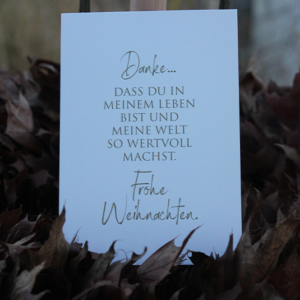 Danke...
DASS DU IN
MEINEM LEBEN
BIST UND
MEINE WELT
SO WERTVOLL
MACHST.
Frohe
Weihnachten.